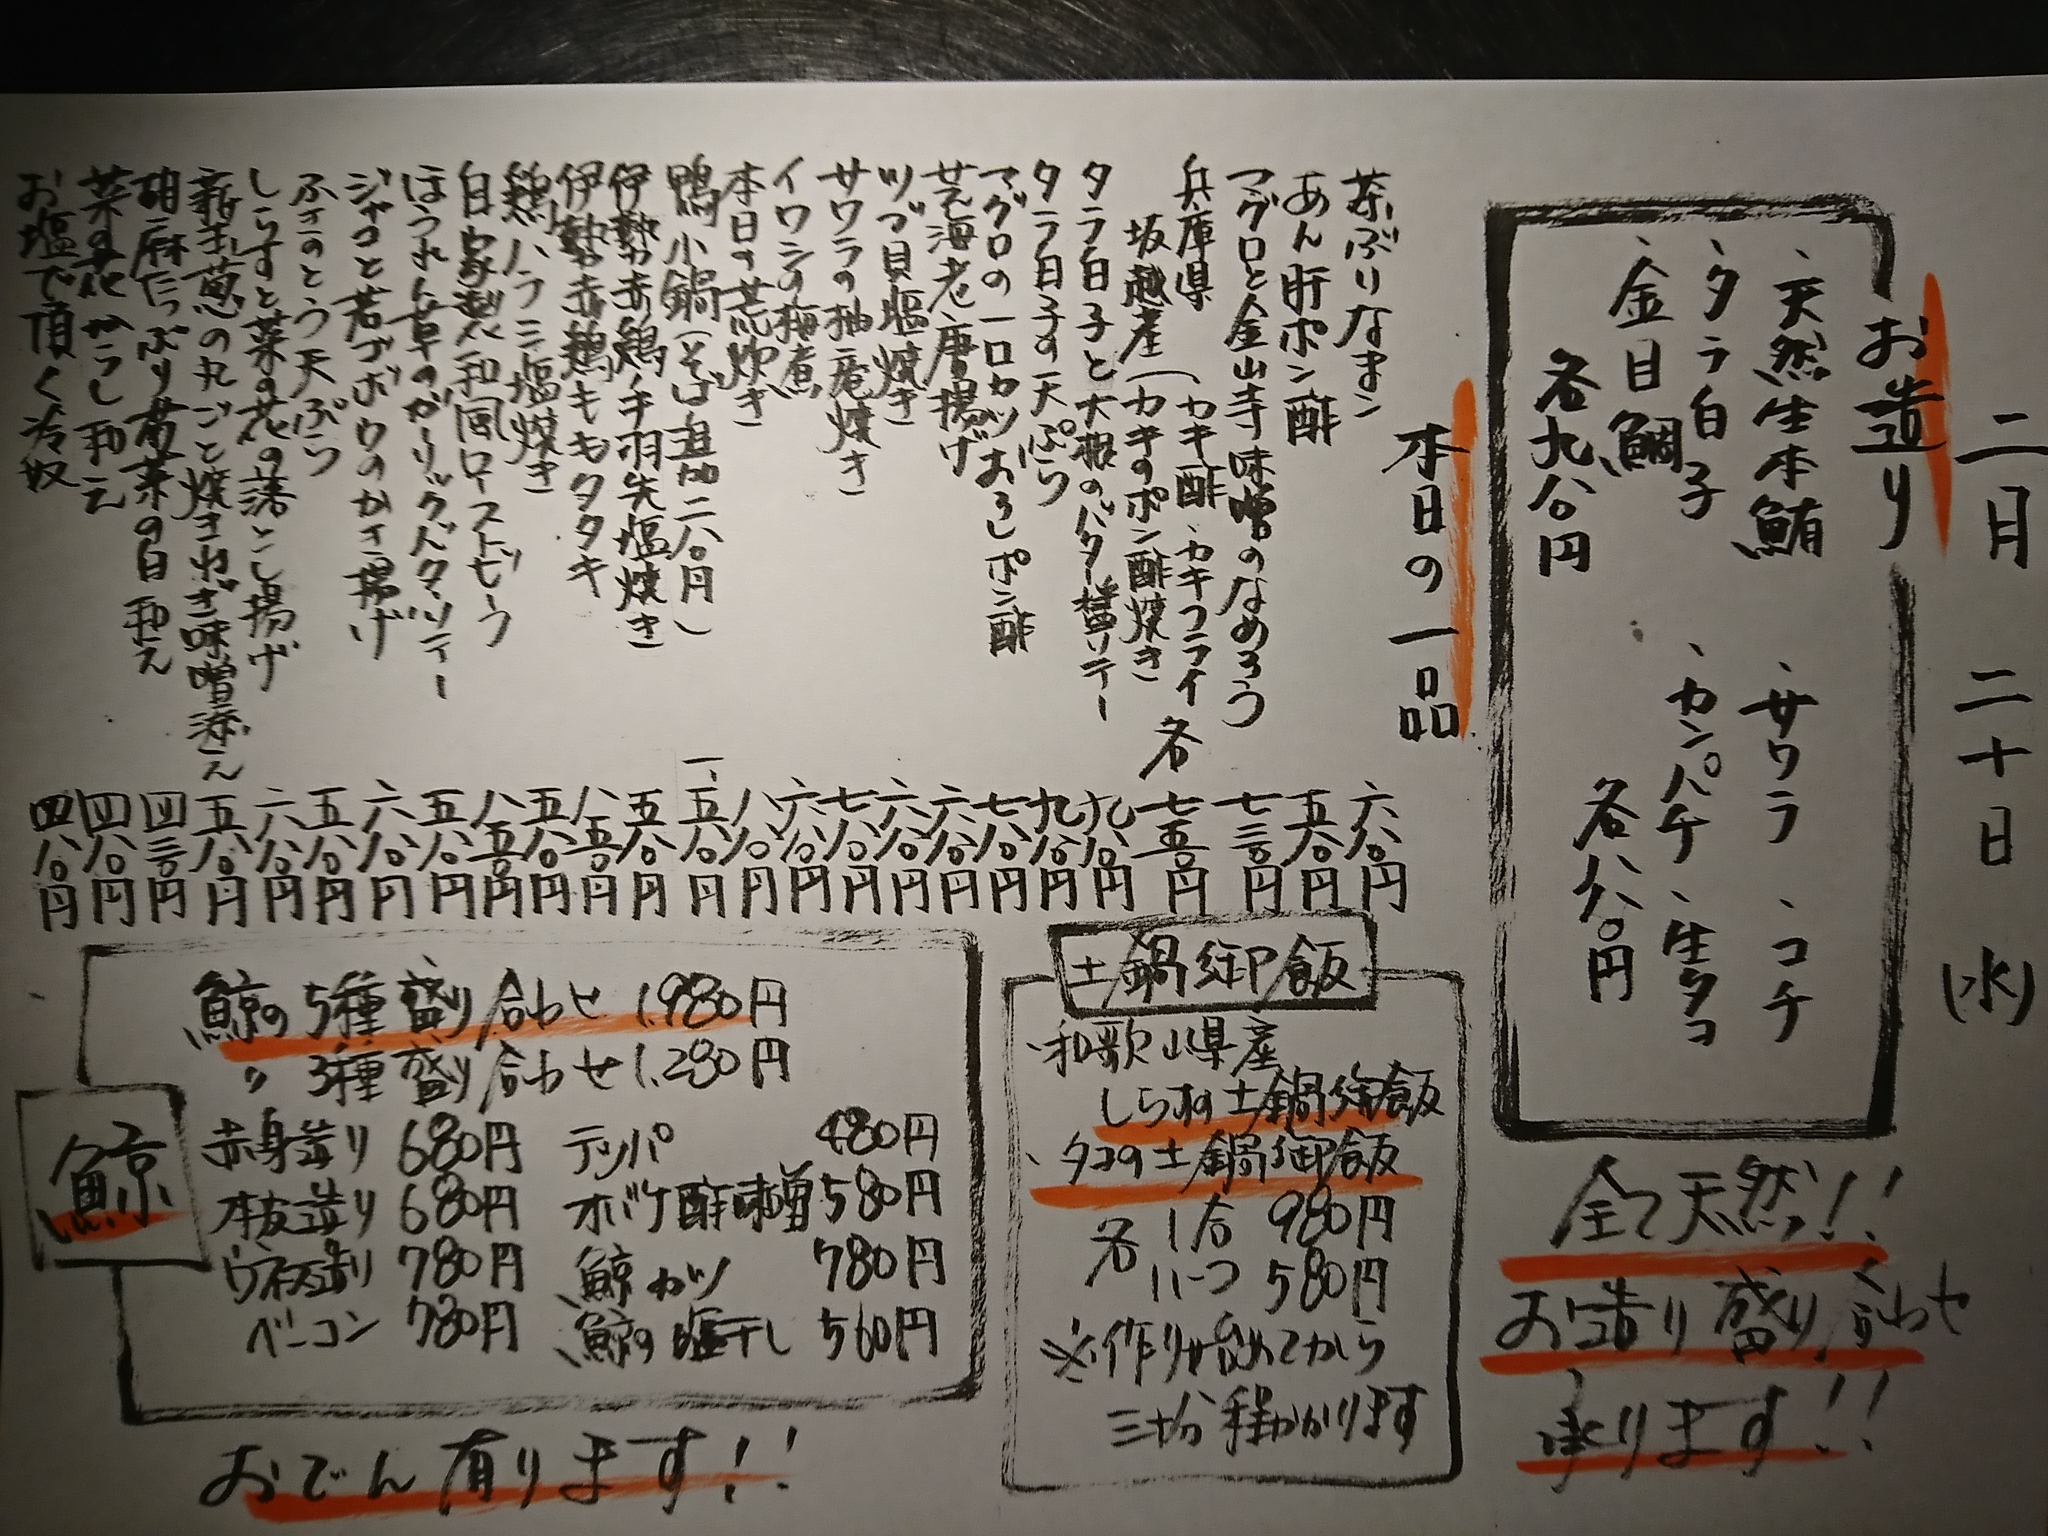 二月 二十日 (水)
お造り
、天然生本鮪
、タラ白子
、金目鯛
各九八〇円
、サワラ 、コチ
、カンパチ 、生タコ
各八八〇円
全て天然!!
お造り盛り合わせ
承ります!!
本日の一品
茶ぶりなまこ 六八〇円
あん肝ポン酢 五八〇円
マグロと金山寺味噌のなめろう 七三〇円
兵庫県
坂越産(カキ酢、カキフライ
カキのポン酢焼き 各 七五〇円
タラ白子と大根のバター醤ソテー 九八〇円
タラ白子の天ぷら 九八〇円
マグロの一口カツおろしポン酢 七八〇円
芝海老唐揚げ 六八〇円
ツブ貝塩焼き 六八〇円
サワラの柚庵焼き 七八〇円
イワシの梅煮 六八〇円
本日の荒炊き 八八〇円
鴨小鍋(そば追加二八〇円) 一、五八〇円
伊勢赤鶏手羽先塩焼き 五八〇円
伊勢赤鶏ももタタキ 八五〇円
鶏ハラミ塩焼き 五八〇円
自家製和風ローストビーフ 八五〇円
ほうれん草のガーリックバターソテー 五八〇円
ジャコと若ゴボウのかき揚げ 六八〇円
ふきのとう天ぷら 五八〇円
しらすと菜の花の落とし揚げ 六八〇円
新玉葱の丸ごと焼きねぎ味噌添え 五八〇円
胡麻たっぷり春菊の白和え 四三〇円
菜の花からし和え 四八〇円
お塩で頂く冷奴 四八〇円
土鍋御飯
、和歌山県産
しらすの土鍋御飯
、タコの土鍋御飯
各 1合 980円
各 ハーフ 580円
※作り始めてから
三十分程かかります
鯨
鯨の5種盛り合わせ 1,980円
〃 3種盛り合わせ 1,280円
赤身造り 680円 テッパ 480円
本皮造り 680円 オバケ酢味噌 580円
ウネス造り 780円 鯨カツ 780円
ベーコン 780円 鯨の塩干し 560円
おでん有ります!!